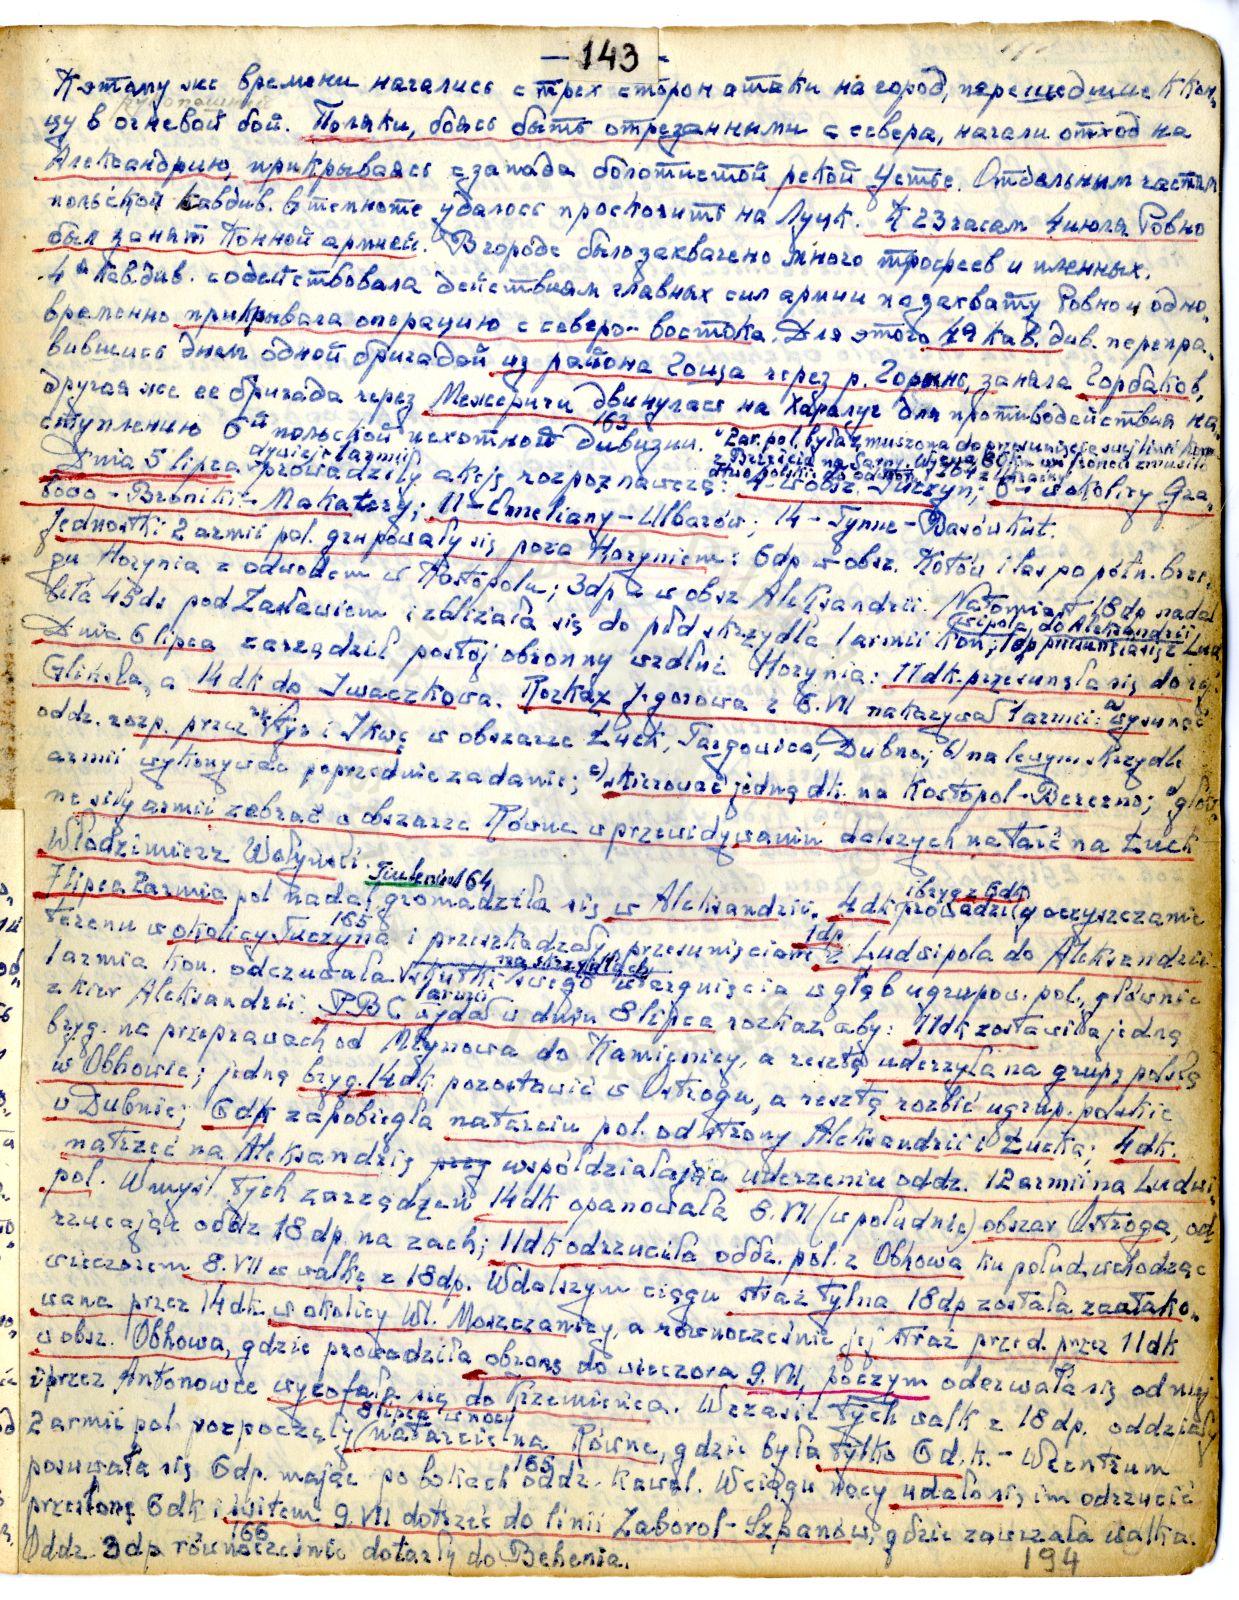 - 143 -
К этому же времени начались с трех сторон атаки на город, перешедшие к кон-
цу в огневой бой. Поляки, боясь быть отрезанными с севера, начали отход на
Александрию, прикрываясь с запада болотистой рекой Устье. Отдельным частям
польской кавдив. в темноте удалось проскочить на Луцк. К 23 часам 4 июля Ровно
был занят Конной армией. В городе было захвачено много трофеев и пленных.
4ᵃ кавдив. содействовала действиям главных сил армии по захвату Ровно и одно-
временно прикрывала операцию с северо-востока. Для этого 4я кав. див. перепра-
вившись днем одной бригадой из района Гоща через р. Горынь, заняла Горбаков,
другая же ее бригада через Межеричи двинулась на Харалуг для противодействия на-
ступлению 6ой польской пехотной дивизии. 163 "2 ar. pol. była zmuszona do przesunięcia swej linii
z Brześcia na Sarny.
Dnia 5 lipca dywizje 1 armii prowadziły akcję rozpoznawczą: 4 - w obsz. Tuczyn; 6 - w okolicy Gra-
bowo - Broniki - Makatery; 11 - Omeliany - Ulbarów; 14 - Tynne - Basówkut.
Jednostki 2 armii pol. grupowały się poza Horyniem: 6dp w obsz. Kotów i las po półn. brze-
gu Horynia z odwodem w Kostopolu; 3dp w obsz Aleksandrii. Natomiast 18 dp nadal
biła 45 ds pod Zasławiem i zbliżała się do płd skrzydła 1 armii Kon; 1dp przesunęła się z Lud-
wipola do Aleksandrii
Dnia 6 lipca zarządził postój obronny wzdłuż Horynia: 11 dk. przesunęła się do rej.
Glińska, a 14 dk do Iwaczkowa. Rozkaz Jegorowa z 6.VII nakazywał 1 armii: a) wysunąć
oddz. rozp. przez rz. Styr i Ikwę w obszarze Łuck, Targowica, Dubno; b) na lewym skrzydle
armii wykonywać poprzednie zadanie; c) skierować jedną dk. na Kostopol - Berezno; d) głów-
ne siły armii zebrać w obszarze Równe w przewidywaniu dalszych natarć na Łuck
Włodzimierz Wołyński. Tiuleniew 164
7 lipca 2 armia pol nadal gromadziła się w Aleksandrii. 4 dk i bryg z 6 dk prowadziły oczyszczanie
terenu w okolicy Tuczyna 165 i przeszkadzały przesunięciom 1dp z Ludwipola do Aleksandrii
1 armia kon. odczuwała skutki swego wtargnięcia w głąb ugrupow. pol., głównie na skrzydłach
z kier Aleksandrii. PBC 1 armii wydał w dniu 8 lipca rozkaz aby: 11 dk zostawiła jedną
bryg. na przeprawach od Młynowa do Kamienicy, a resztą uderzyła na grupę polską
w Obhowie; jedną bryg. 14 dk pozostawić w Ostrogu, a resztą rozbić ugrup. polskie
w Dubnie; 6 dk zapobiegła natarciu pol. od strony Aleksandrii i Łucka; 4 dk.
natrzeć na Aleksandrię współdziałając uderzeniu oddz. 12 armii na Ludwi-
pol. W myśl tych zarządzeń 14 dk opanowała 8.VII (w południe) obszar Ostroga, od-
rzucając oddz 18 dp. na zach; 11 dk odrzuciła oddz. pol. z Obhowa ku połud. wchodząc
wieczorem 8.VII w walkę z 18 dp. W dalszym ciągu straż tylna 18 dp została zaatako-
wana przez 14 dk w okolicy Wl. Moszczanicy, a równocześnie jej straż przed. przez 11 dk
w obsz. Obhowa, gdzie prowadziła obronę do wieczora 9.VII, poczym oderwała się od niej
i przez Antonowce wycofała się do Krzemieńca. W czasie tych walk z 18 dp. oddziały
2 armii pol rozpoczęły 8 lipca w nocy natarcie na Równe, gdzie była tylko 6 d.k. - W centrum
posuwała się 6 dp. mając po bokach oddz. kawal. 165 W ciągu nocy udało się im odrzucić
przesłonę 6 dk i świtem 9.VII dotrzeć do linii Zaborol - Szpanów, gdzie zawrzała walka.
Oddz 3 dp 166 równocześnie dotarły do Behenia.
194